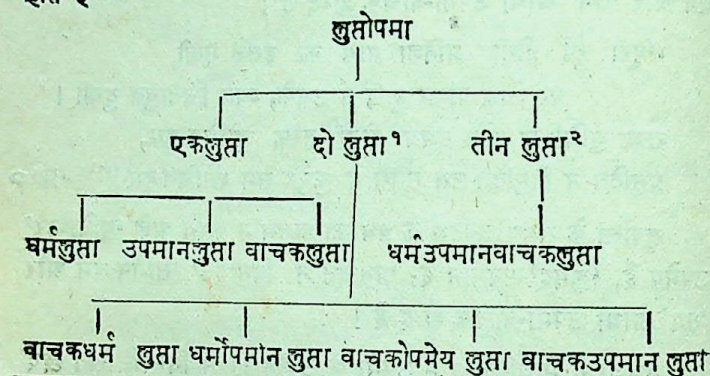 लुप्तोपमा
एकलुप्ता दो लुप्ता१ तीन लुप्ता२
धर्मलुप्ता उपमानलुप्ता वाचकलुप्ता धर्मउपमानवाचकलुप्ता
वाचकधर्म लुप्ता धर्मोपमान लुप्ता वाचकोपमेय लुप्ता वाचकउपमान लुप्ता